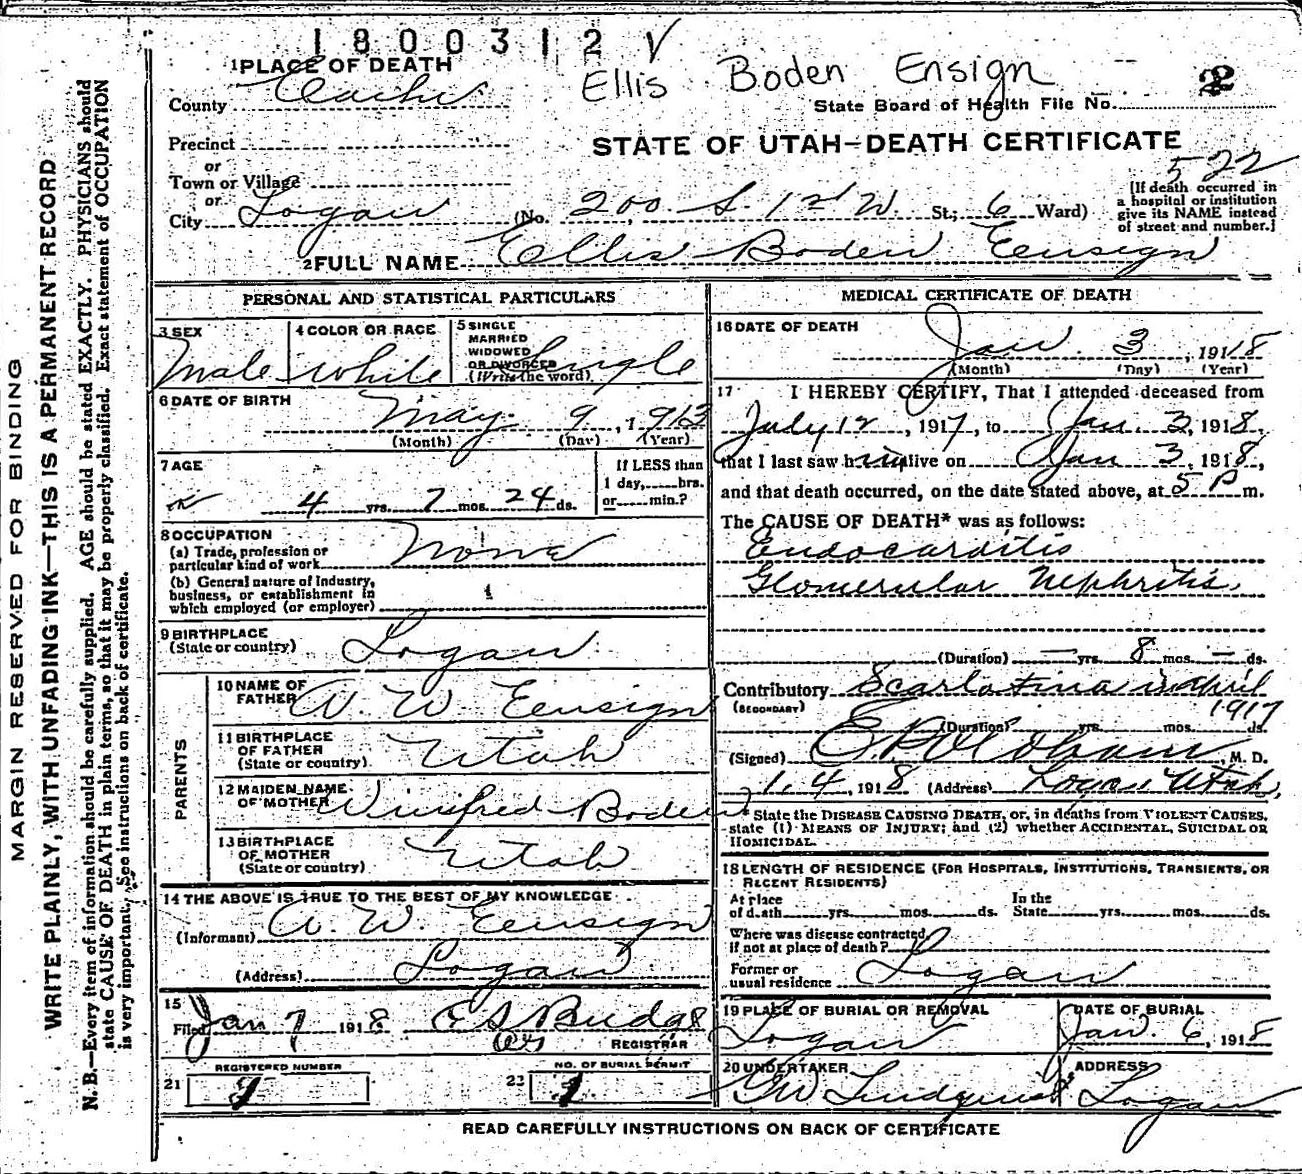 1800312 V
1 PLACE OF DEATH
Ellis Boden Ensign
2
County Cache
State Board of Health File No.
Precinct
STATE OF UTAH—DEATH CERTIFICATE
or
522
Town or Village
or
City Logan (No. 200 S. 1st W. St.; 6 Ward)
[If death occurred in a hospital or institution give its NAME instead of street and number.]
2 FULL NAME Ellis Boden Eensign
PERSONAL AND STATISTICAL PARTICULARS
3 SEX Male
4 COLOR OR RACE White
5 SINGLE MARRIED WIDOWED OR DIVORCED (Write the word) Single
6 DATE OF BIRTH May 9, 1913
(Month) (Day) (Year)
7 AGE
4 yrs. 7 mos. 24 ds.
If LESS than
1 day,......hrs.
or......min.?
8 OCCUPATION
(a) Trade, profession or
particular kind of work None
(b) General nature of Industry,
business, or establishment in
which employed (or employer)
9 BIRTHPLACE
(State or country) Logan
PARENTS
10 NAME OF
FATHER A. W. Eensign
11 BIRTHPLACE
OF FATHER
(State or country) Utah
12 MAIDEN NAME
OF MOTHER Winifred Boden
13 BIRTHPLACE
OF MOTHER
(State or country) Utah
14 THE ABOVE IS TRUE TO THE BEST OF MY KNOWLEDGE
(Informant) A. W. Eensign
(Address) Logan
15
Filed Jan 7 1918
REGISTRAR
REGISTERED NUMBER
21
NO. OF BURIAL PERMIT
1
MEDICAL CERTIFICATE OF DEATH
16 DATE OF DEATH
Jan. 3, 1918
(Month) (Day) (Year)
17 I HEREBY CERTIFY, That I attended deceased from
July 12, 1917, to Jan. 3, 1918,
that I last saw him alive on Jan 3, 1918,
and that death occurred, on the date stated above, at 5 P m.
The CAUSE OF DEATH* was as follows:
Endocarditis
Glomerular Nephritis.
(Duration) — yrs. 8 mos. — ds.
Contributory Scarlatina in April
(SECONDARY) 1917
(Duration) yrs. mos. ds.
(Signed) M. D.
1.4, 1918 (Address) Logan Utah.
* State the DISEASE CAUSING DEATH, or, in deaths from VIOLENT CAUSES,
state (1) MEANS OF INJURY; and (2) whether ACCIDENTAL, SUICIDAL OR
HOMICIDAL.
18 LENGTH OF RESIDENCE (FOR HOSPITALS, INSTITUTIONS, TRANSIENTS, OR
RECENT RESIDENTS)
At place
of death......yrs.......mos.......ds.
In the
State......yrs.......mos.......ds.
Where was disease contracted,
if not at place of death?
Former or
usual residence Logan
19 PLACE OF BURIAL OR REMOVAL
Logan
DATE OF BURIAL
Jan. 6, 1918
20 UNDERTAKER
ADDRESS
Logan
READ CAREFULLY INSTRUCTIONS ON BACK OF CERTIFICATE
MARGIN RESERVED FOR BINDING
WRITE PLAINLY, WITH UNFADING INK—THIS IS A PERMANENT RECORD
N. B.—Every item of information should be carefully supplied. AGE should be stated EXACTLY. PHYSICIANS should
state CAUSE OF DEATH in plain terms, so that it may be properly classified. Exact statement of OCCUPATION
is very important. See instructions on back of certificate.